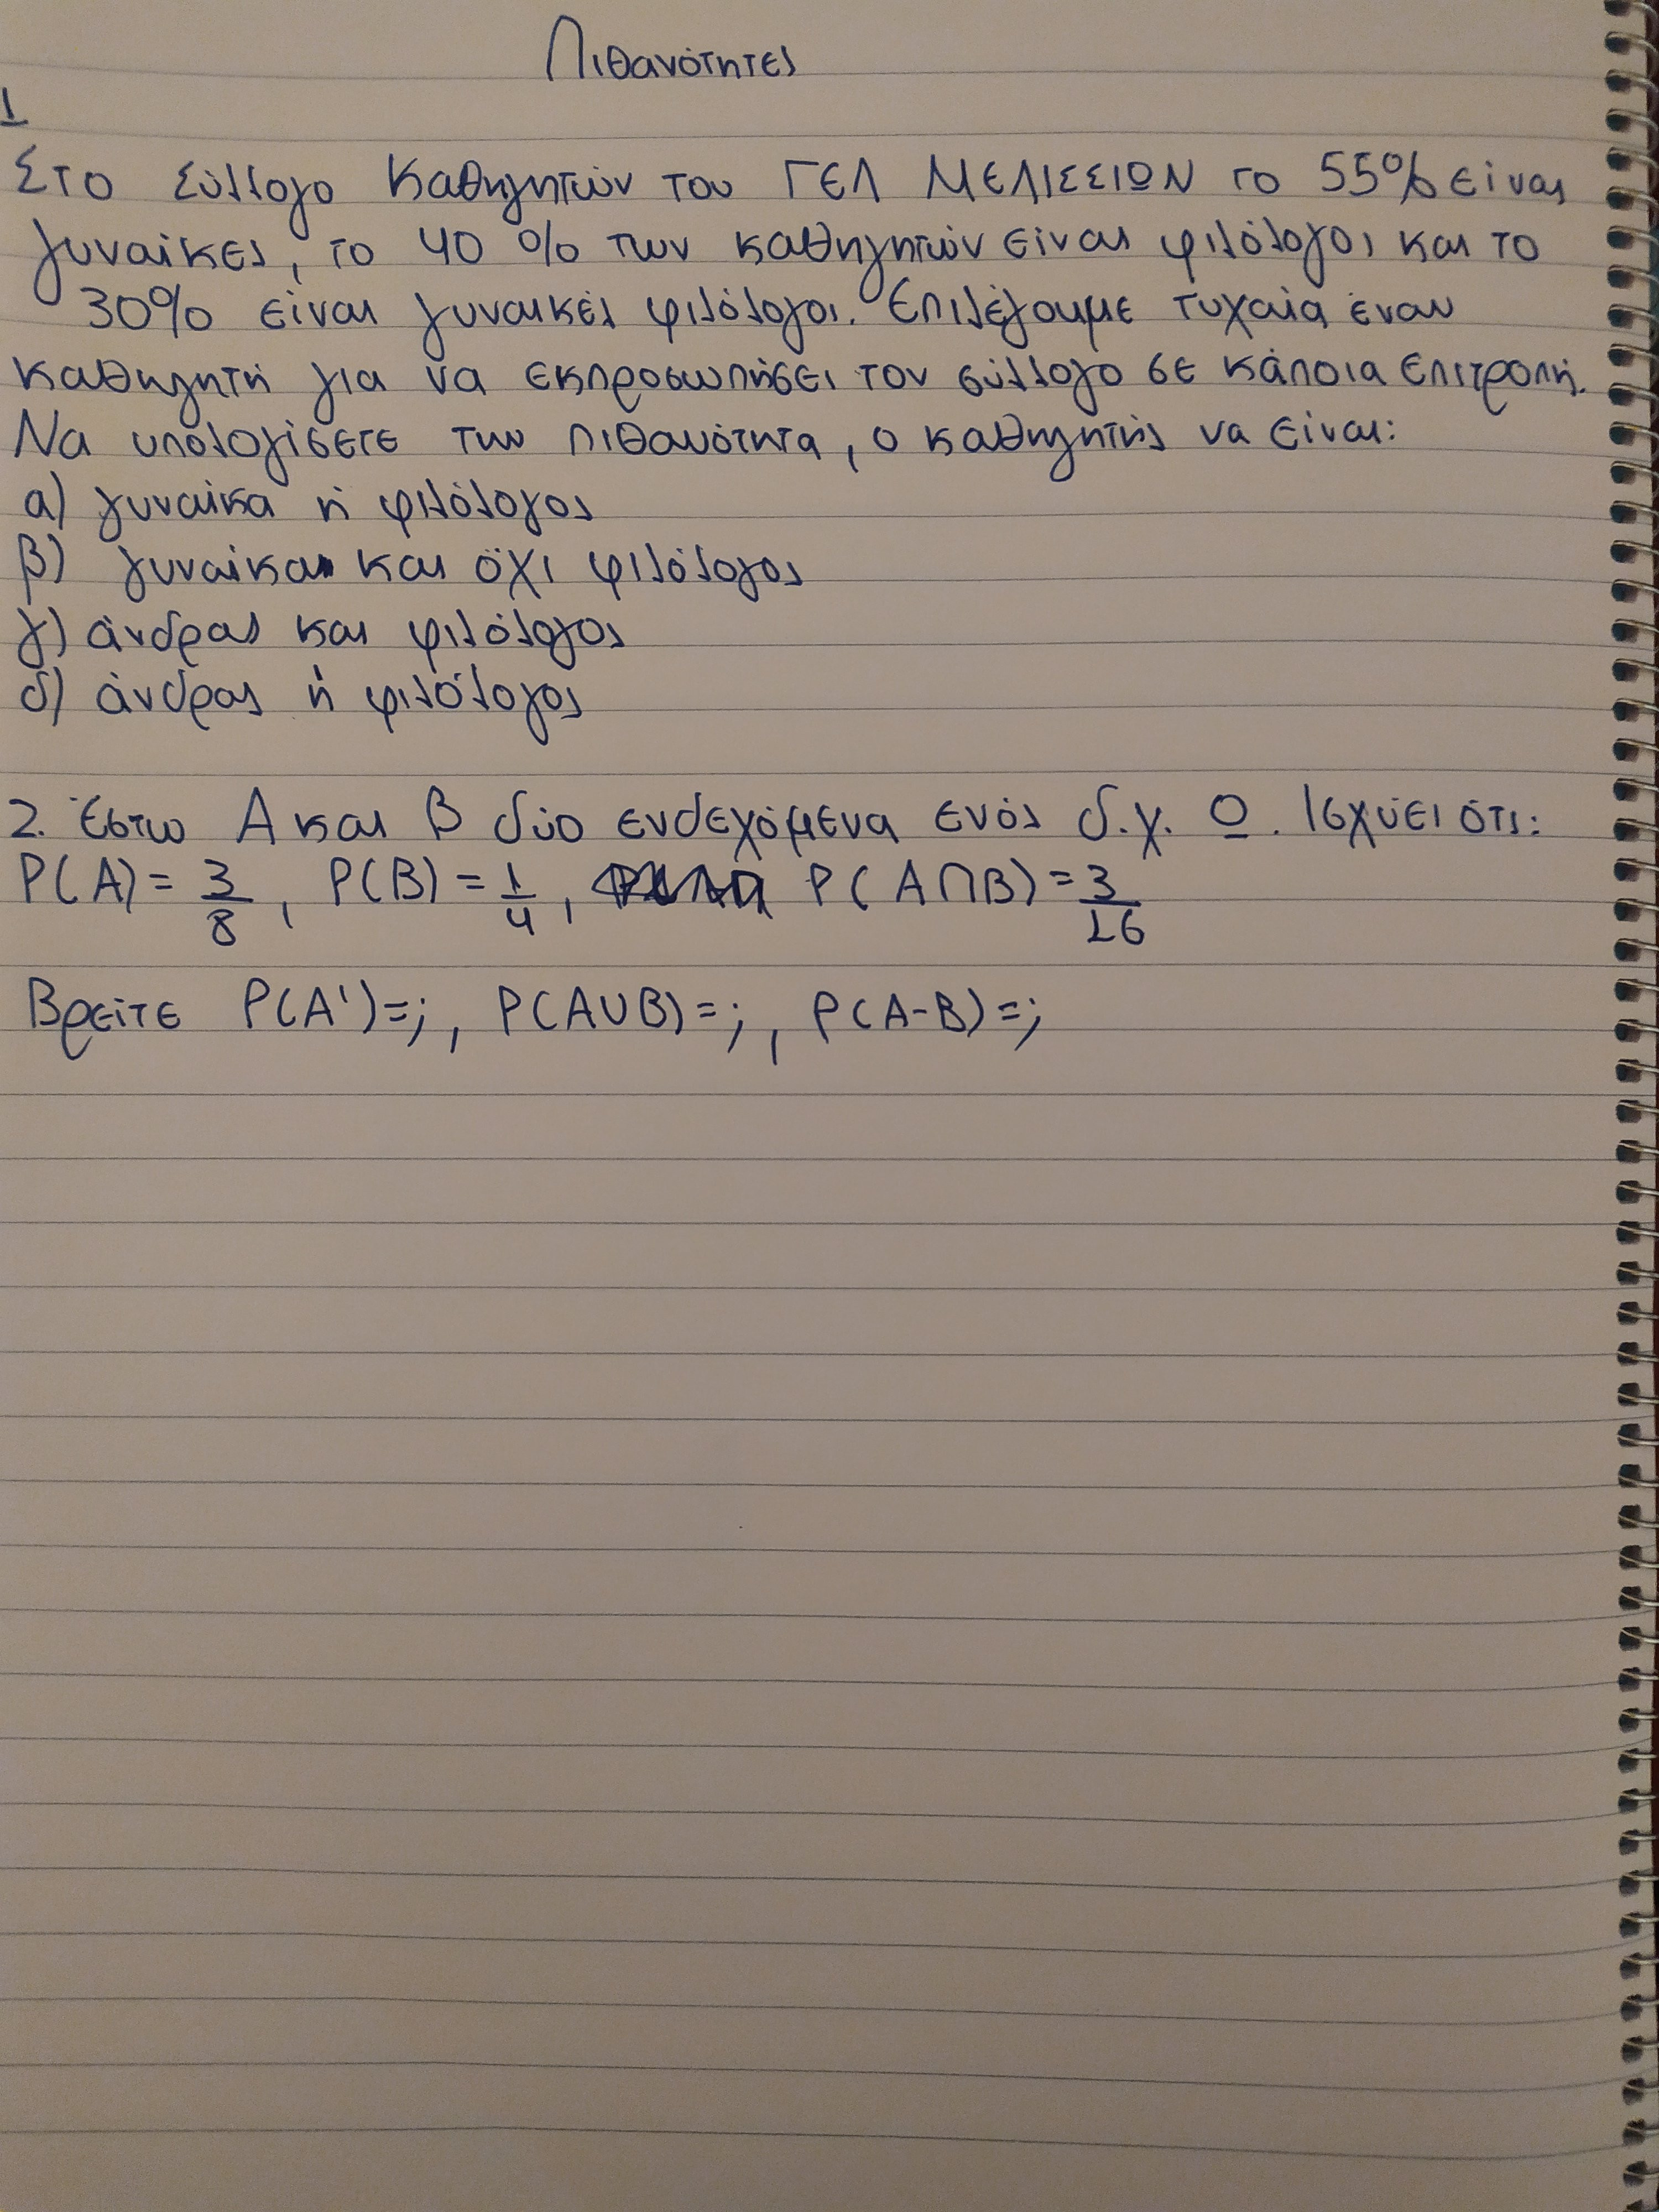 Πιθανότητες
1
Στο Σύλλογο Καθηγητών του ΓΕΛ ΜΕΛΙΣΣΙΩΝ το 55% είναι
γυναίκες, το 40 % των καθηγητών είναι φιλόλογοι και το
30% είναι γυναίκες φιλόλογοι. Επιλέγουμε τυχαία έναν
καθηγητή για να εκπροσωπήσει τον σύλλογο σε κάποια επιτροπή.
Να υπολογίσετε την πιθανότητα, ο καθηγητής να είναι:
α) γυναίκα ή φιλόλογος
β) γυναίκα και όχι φιλόλογος
γ) άνδρας και φιλόλογος
δ) άνδρας ή φιλόλογος
2. Έστω Α και Β δύο ενδεχόμενα ενός δ.χ. Ω. Ισχύει ότι:
P(A) = 3/8, P(B) = 1/4, P(A∩B) = 3/16
Βρείτε P(A')=;, P(A∪B)=;, P(A-B)=;